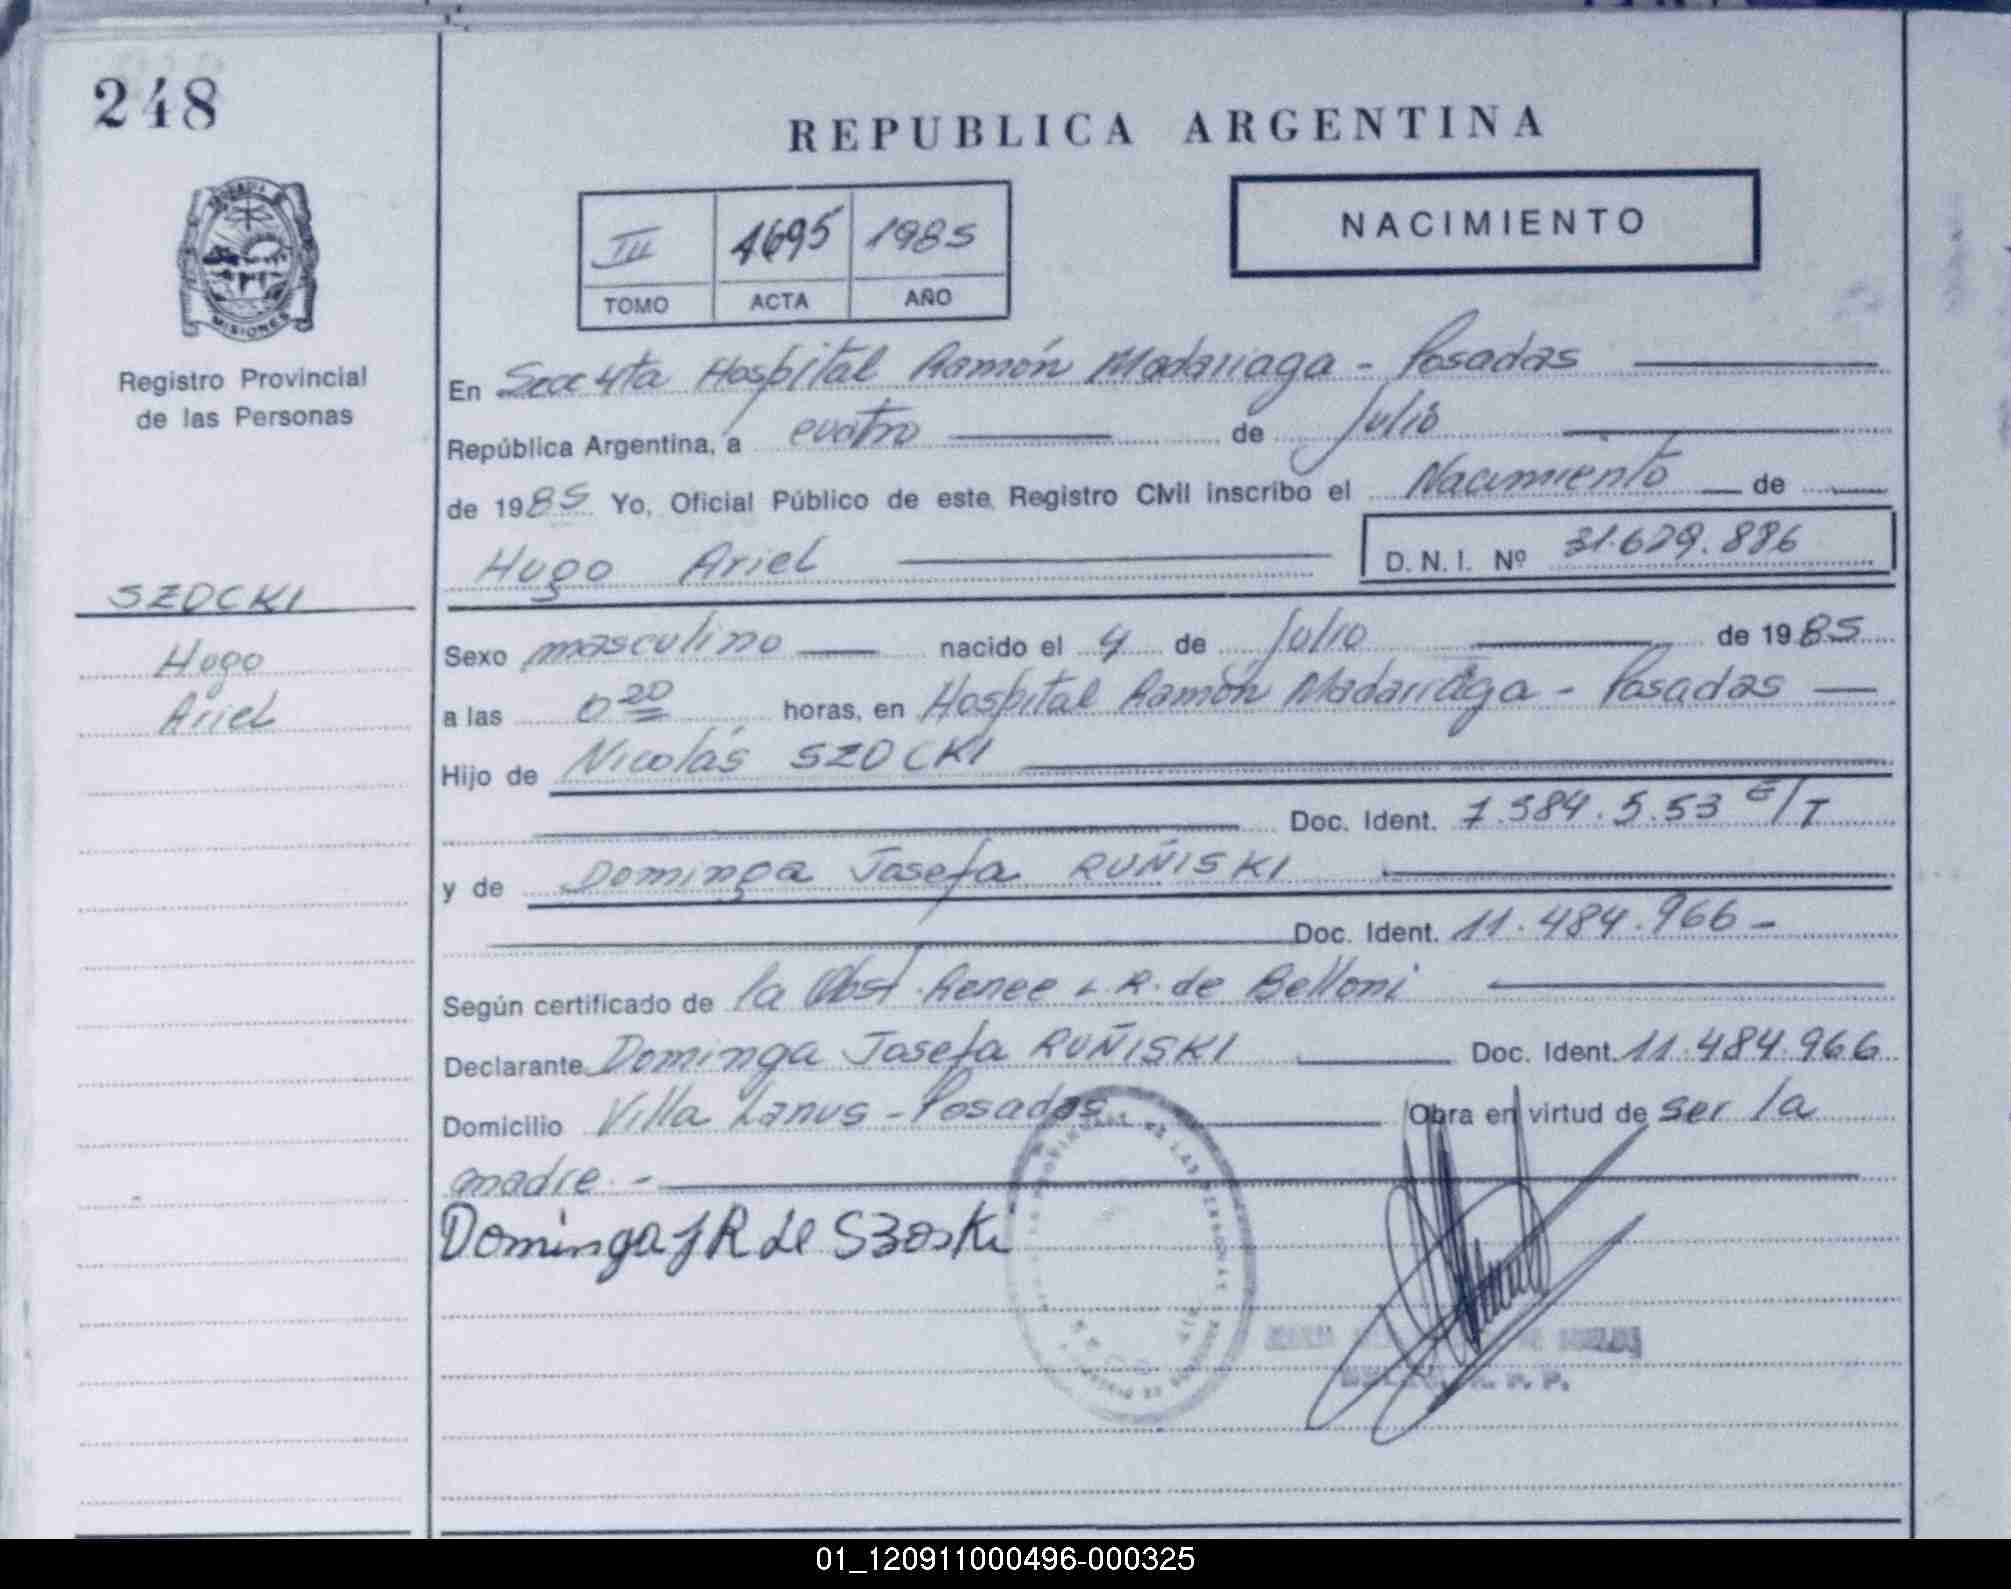 248
REPUBLICA ARGENTINA
NACIMIENTO
III 4695 1985
TOMO ACTA AÑO
MISIONES
Registro Provincial
de las Personas
En Secc 4ta Hospital Ramón Madariaga - Posadas
República Argentina, a cuatro de Julio
de 1985 Yo, Oficial Público de este Registro Civil inscribo el Nacimiento de
Hugo Ariel D. N. I. Nº 31.629.886
SZOCKI
Hugo
Ariel
Sexo masculino nacido el 4 de Julio de 1985
a las 0 20 horas, en Hospital Ramón Madariaga - Posadas
Hijo de Nicolás SZOCKI
Doc. Ident. 7.584.553 E/T
y de Dominga Josefa RUÑISKI
Doc. Ident. 11.484.966 -
Según certificado de la Obst. Renee L R. de Belloni
Declarante Dominga Josefa RUÑISKI Doc. Ident. 11.484.966
Domicilio Villa Lanus - Posadas Obra en virtud de ser la
madre. -
Dominga J R de Szoski
01_120911000496-000325